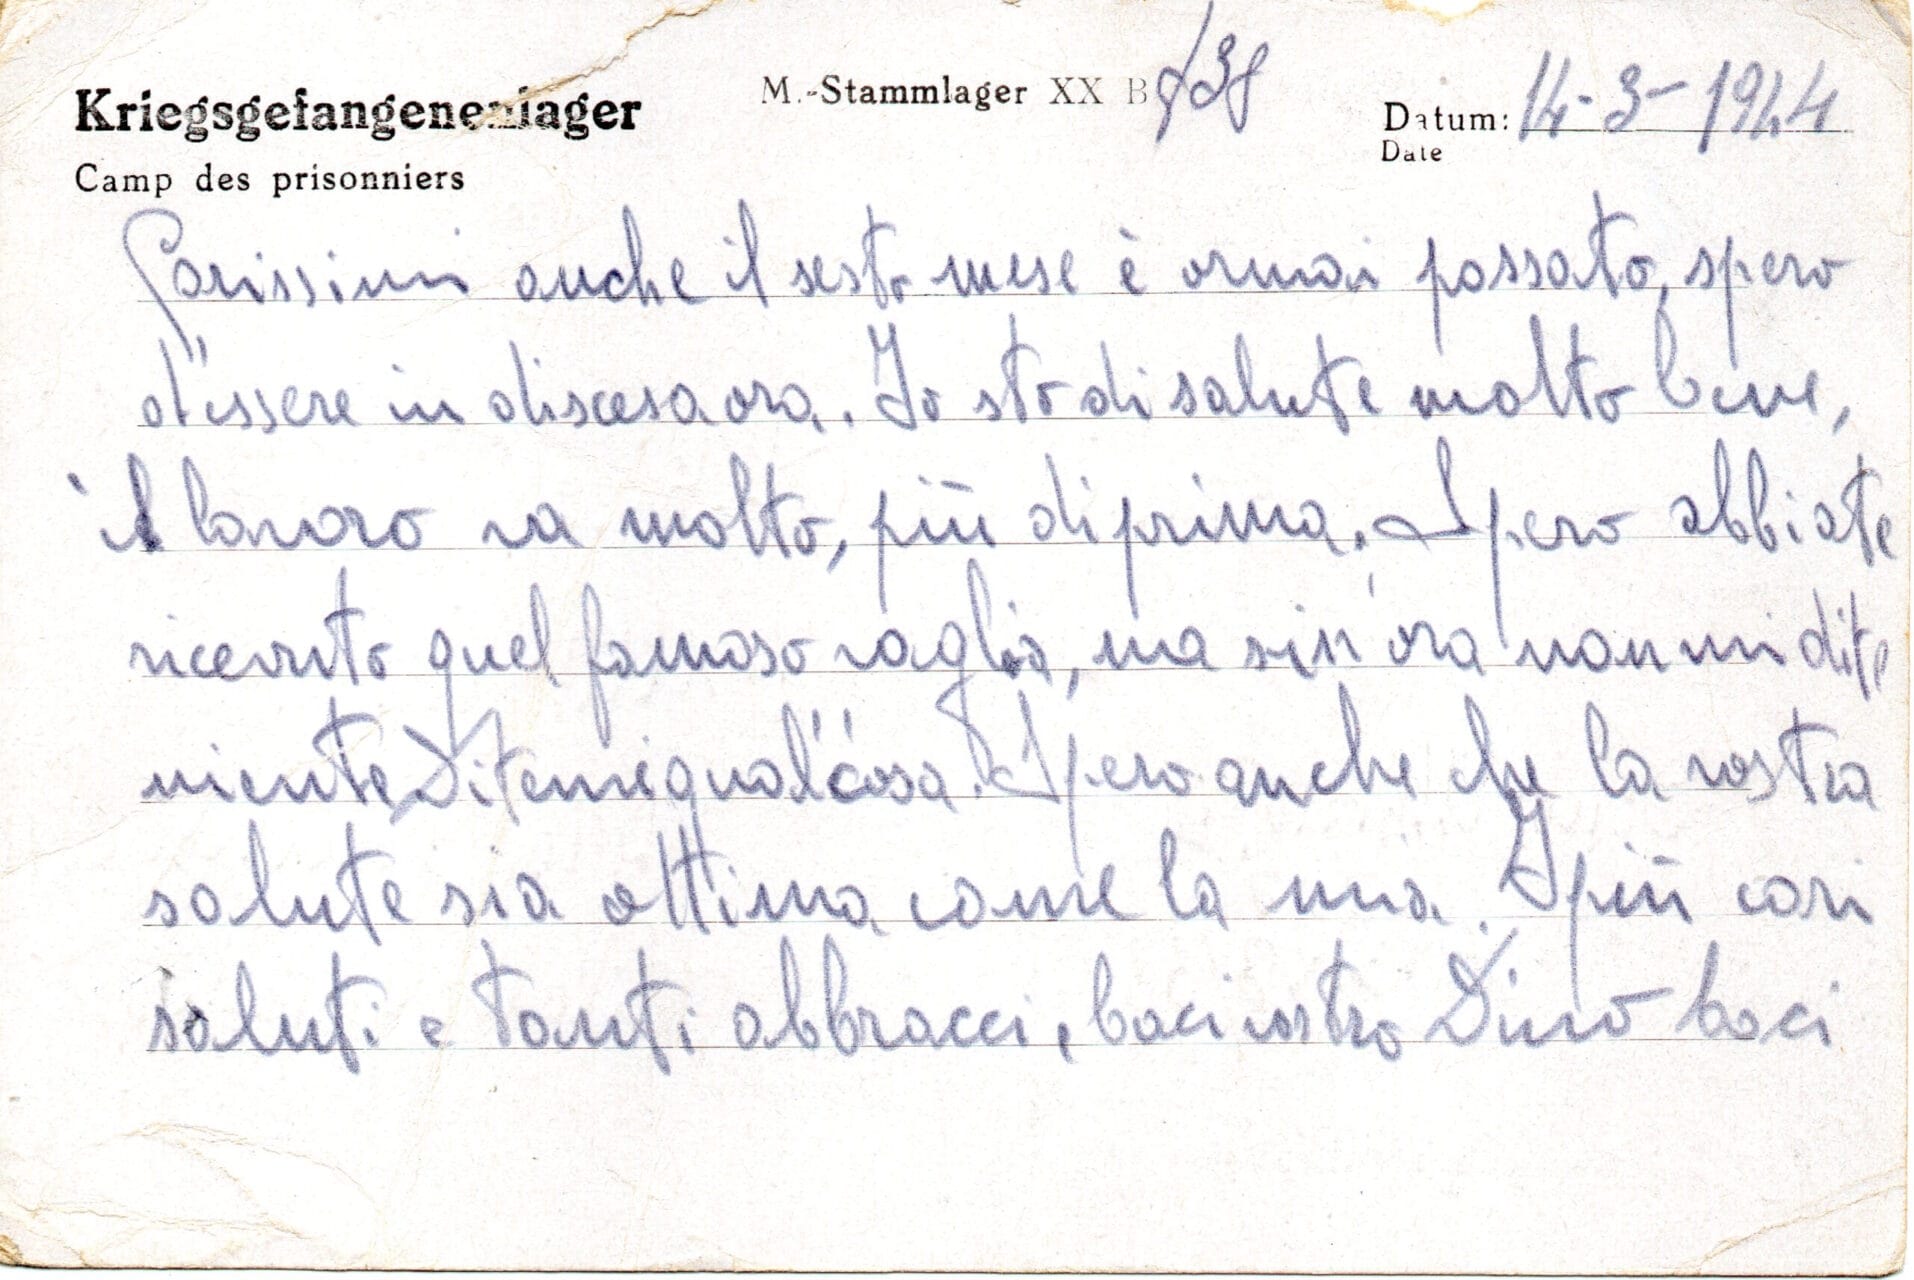 Kriegsgefangenenlager
Camp des prisonniers
M.-Stammlager XX B
Datum: 14-3-1944
Date
Carissimi anche il sesto mese è ormai passato, spero
d'essere in discesa ora. Io sto di salute molto bene,
il lavoro va molto, più di prima. Spero abbiate
ricevuto quel famoso vaglia, ma sin'ora non mi dite
niente Ditemi qual'cosa. Spero anche che la vostra
salute sia ottima come la mia. I più cari
saluti e tanti abbracci, baci vostro Dino baci